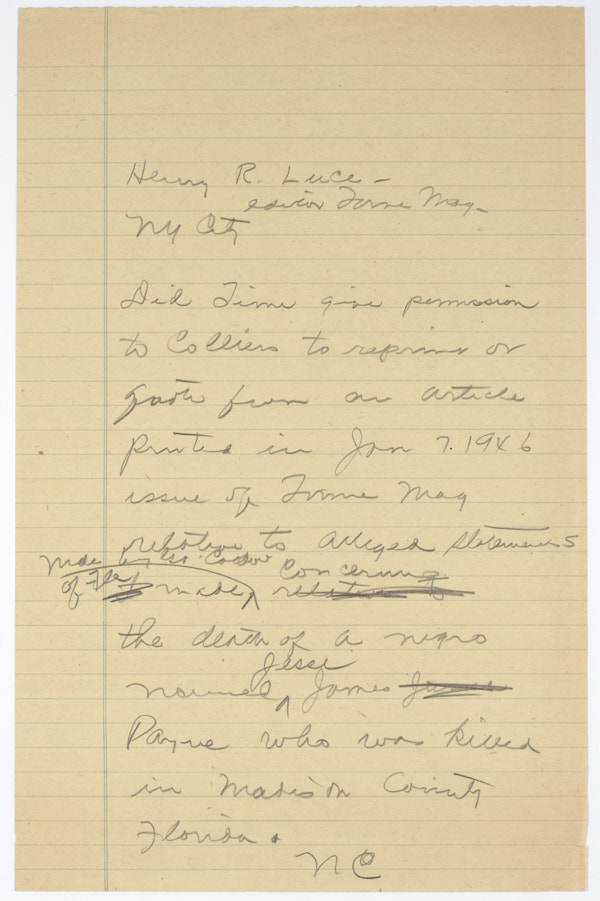 Henry R. Luce –
editor Time Mag –
NY City
Did Time give permission
to Colliers to reprint or
quote from an article
printed in Jan 7. 1946
issue of Time Mag
relative to alleged statements
made by Gov. Caldwell concerning
of Fla made relative to
the death of a negro
Jesse
named James
Payne who was killed
in Madison County
Florida.
NC